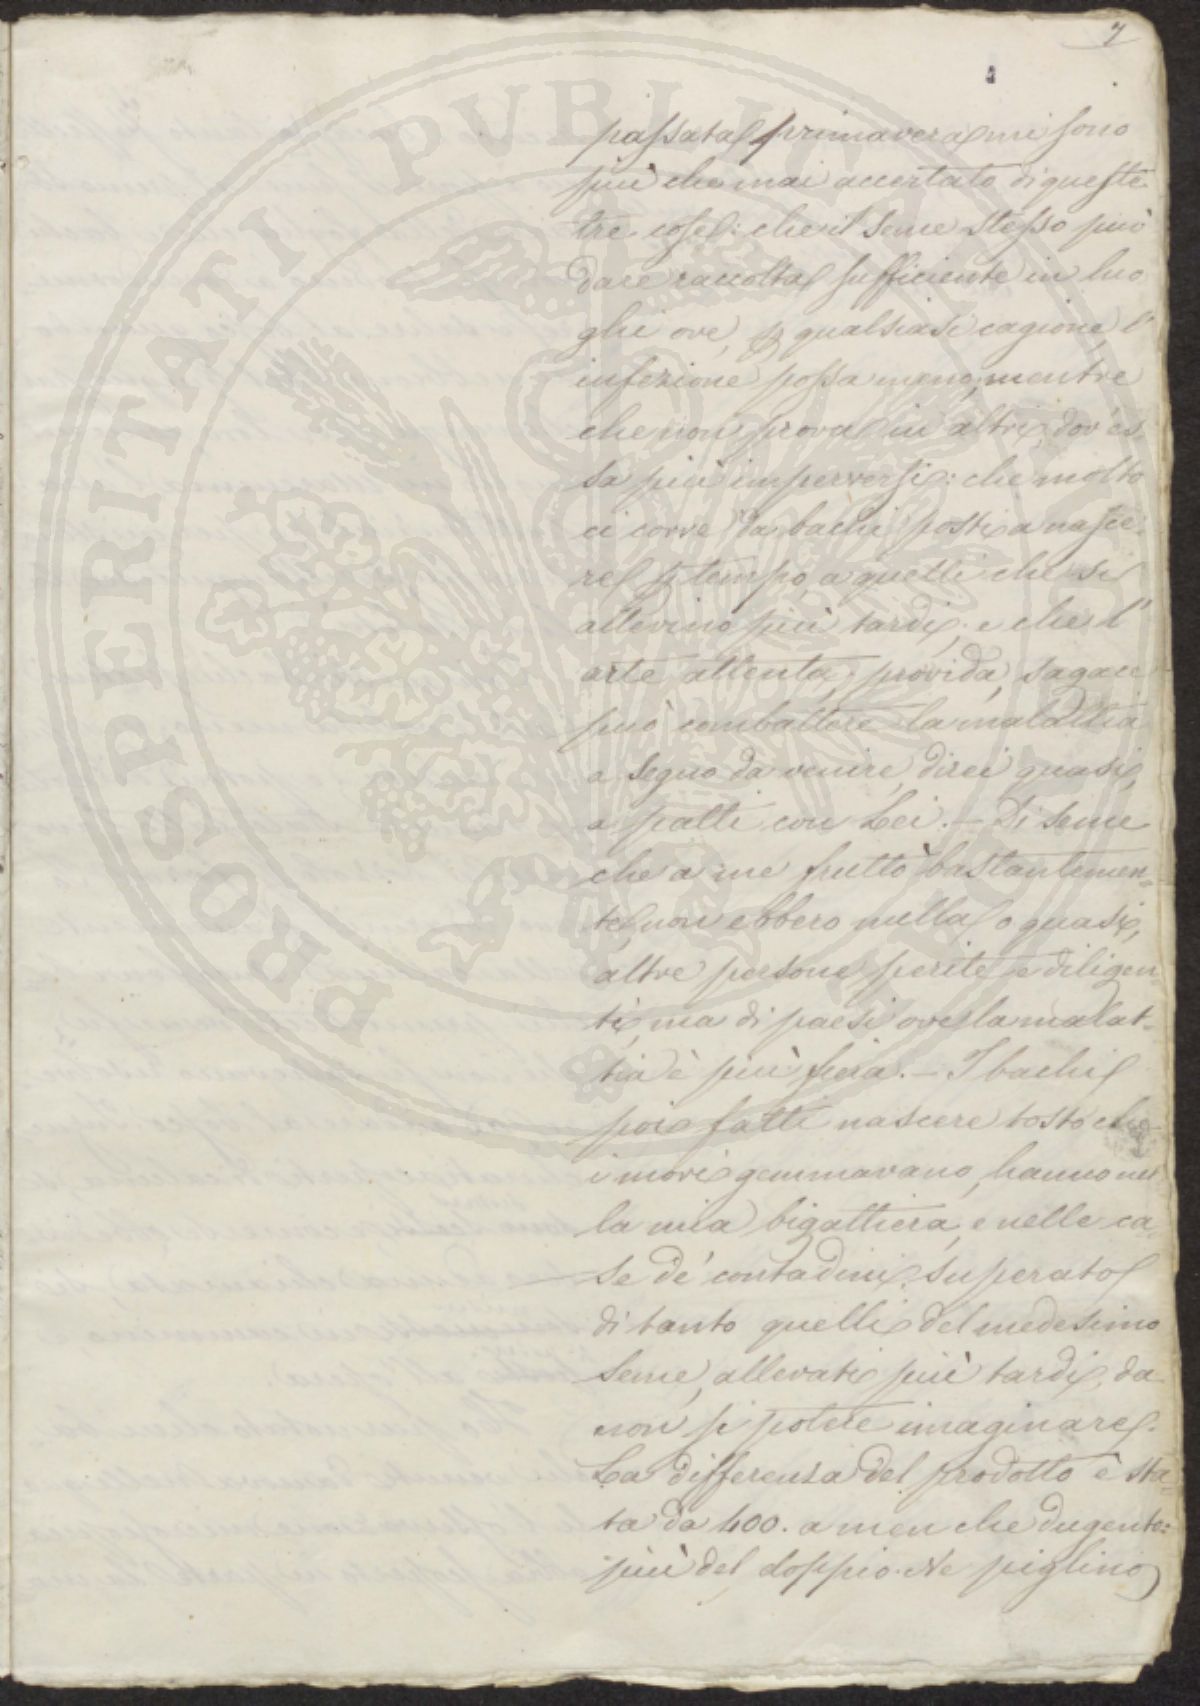 7
PROSPERITATI PVBLICAE
passata primavera mi sono
più che mai accertato di queste
tre cose: che il seme stesso può
dare raccolta sufficiente in luo
ghi ove, p qualsiasi cagione, l'
infezione possa meno, mentre
che non prova in altri, dov'es
sa più imperversi: che molto
ci corre da bachi posti a nasce
re p tempo, a quelli che si
allevino più tardi; e che l'
arte attenta, provida, sagace
può combattere la malattia
a segno da venire, direi quasi,
a patti con Lei. — Di seme
che a me fruttò bastantemen=
te, non ebbero nulla o quasi,
altre persone perite e diligen
ti, ma di paesi ove la malat=
tia è più fiera. — I bachi
poi fatti nascere tosto che
i mori gemmavano, hanno nel
la mia bigattiera, e nelle ca
se de' contadini superato
di tanto quelli del medesimo
seme, allevati più tardi, da
non si potere imaginare.
La differenza del prodotto è sta=
ta da 400. a men che dugento:
più del doppio. Ne piglino